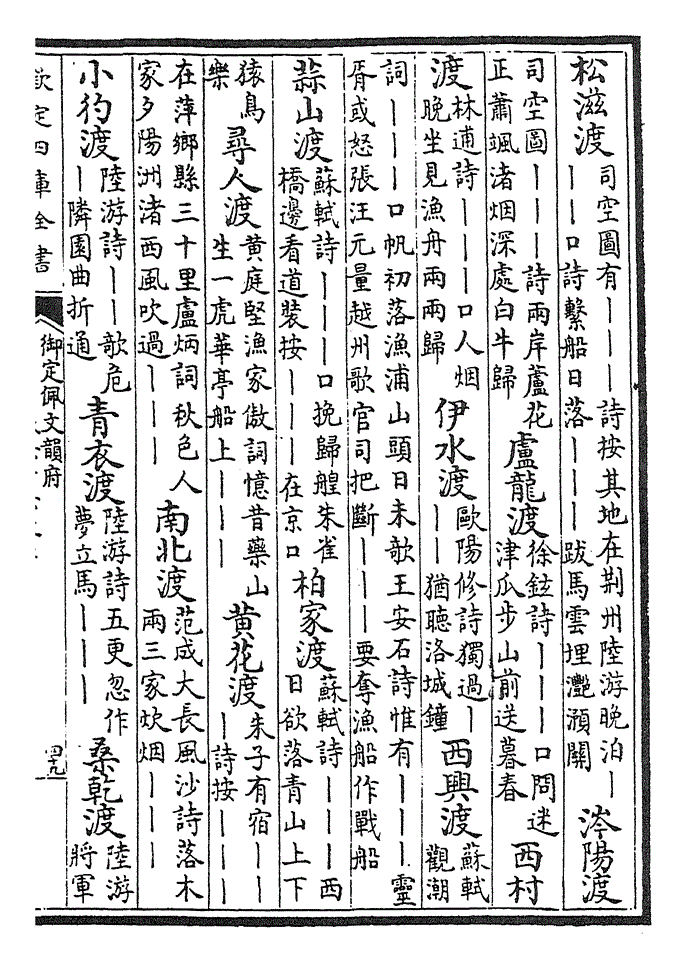 松滋渡司空圖有｜｜｜詩按其地在荆州陸游晚泊｜｜｜口詩繫船日落｜｜｜跋馬雲埋灔澦關涔陽渡
司空圖｜｜｜詩兩岸蘆花正蕭颯渚烟深處白牛歸盧龍渡徐鉉詩｜｜｜口問迷津瓜步山前送暮春西村
渡林逋詩｜｜｜口人烟晚坐見漁舟兩兩歸伊水渡歐陽修詩獨過｜｜｜猶聽洛城鐘西興渡蘇軾觀潮
詞｜｜｜口帆初落漁浦山頭日未欹王安石詩惟有｜｜｜靈胥或怒張汪元量越州歌官司把斷｜｜｜要奪漁船作戰船
蒜山渡蘇軾詩｜｜｜口挽歸艎朱雀橋邊看道裝按｜｜｜在京口柏家渡蘇軾詩｜｜｜西日欲落青山上下
猿鳥樂尋人渡黄庭堅漁家傲詞憶昔藥山生一虎華亭船上｜｜｜黄花渡朱子有宿｜｜｜詩按｜｜｜
在萍鄉縣三十里盧炳詞秋色人家夕陽洲渚西風吹過｜｜｜南北渡范成大長風沙詩落木兩三家炊烟｜｜｜
小彴渡陸游詩｜｜欹危｜隣園曲折通青衣渡陸游詩五更忽作夢立馬｜｜｜桑乾渡陸游將軍
欽定四庫全書
御定佩文韻府
四十九